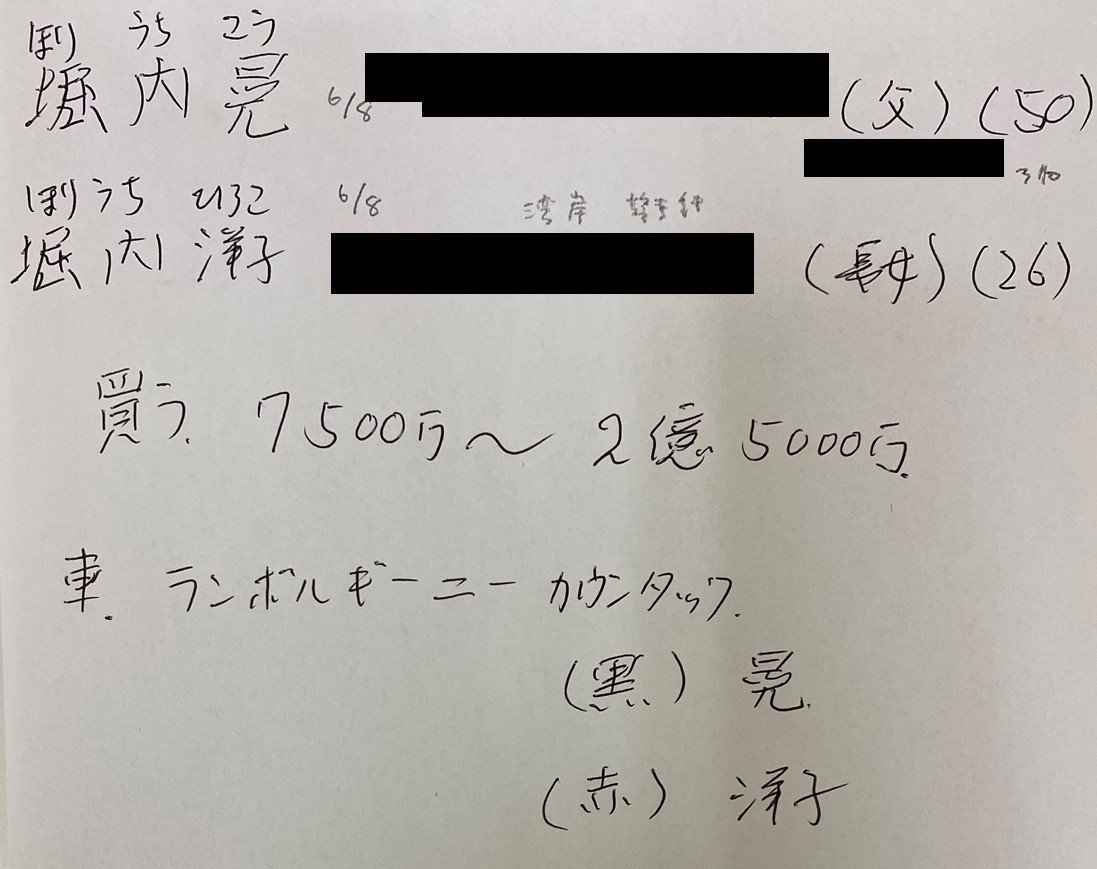 ほり うち こう
堀内晃 6/8 (父)(50)
ほりうち ひろこ 6/8 湾岸
堀内洋子 (長女)(26)
買う. 7500万〜2億5000万.
車. ランボルギーニー カウンタック.
(黒) 晃.
(赤) 洋子